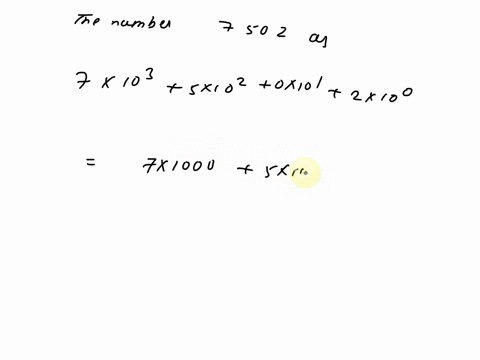 The number 7 502 as
7 × 10³ + 5×10² + 0×10¹ + 2×10⁰
= 7×1000 + 5×10